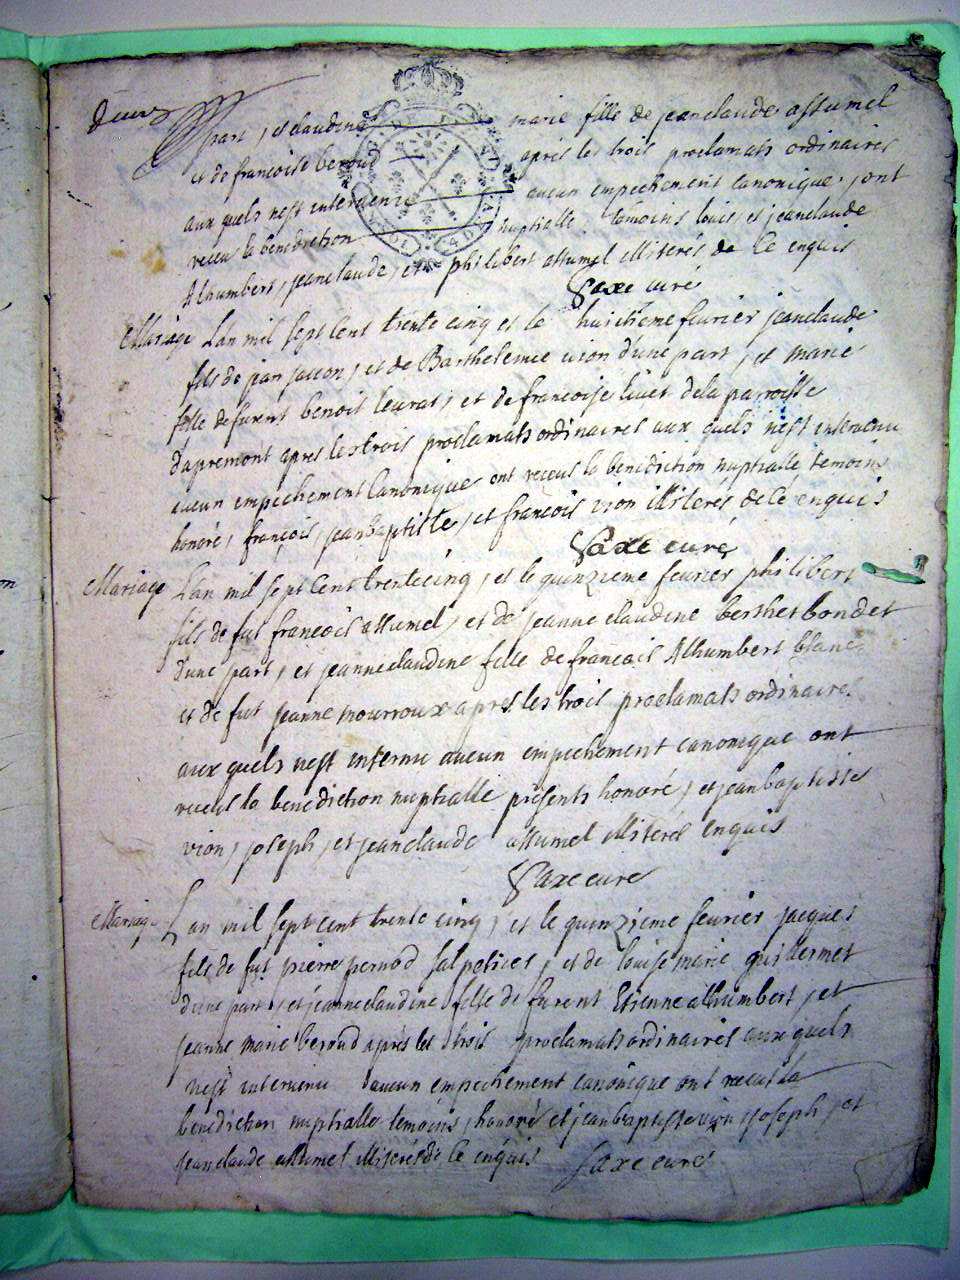 Deux
part, et claudine marie fille de jeanclaude assumel
et de francoise beroud apres les trois proclamats ordinaires
aux quels nest intervenu aucun empechement canonique, ont
receu la benediction nuptialle. temoins louis, et jeanclaude
Alhumbert, jeanclaude, et philibert assumel illiterés de ce enquis
Saxe curé
Mariage Lan mil sept cent trente cinq et le huitieme fevrier jeanclaude
fils de jean jaccon, et de Barthelemie vion d'une part, et marie
fille de furent benoit leurat, et de francoise livet de la parroisse
dapremont apres les trois proclamats ordinaires aux quels nest intervenu
aucun empechement Canonique ont receus la benediction nuptialle temoins
honoré, françois, jean baptiste, et françois vion illiterés de cé enquis
Saxe curé
Mariage Lan mil sept Cent trente cinq, et le quinzieme fevrier philibert
fils de fut francois assumel, et de jeanne claudine berthet bondet
d'une part, et jeanneclaudine fille de francois Alhumbert blanc
et de fut jeanne mourroux apres les trois proclamats ordinaires
aux quels nest internu aucun empechement canonique ont
receus la benediction nuptialle présents honoré, et jeanbaptiste
vion, joseph, et jeanclaude assumel illiterés enquis
Saxe curé
Mariage Lan mil sept cent trente cinq, et le quinzieme fevrier jacques
fils de fut pierre pernod salpetrier, et de louise marie guillermet
d'une part, et jeanneclaudine fille de furent Etienne alhumbert, et
jeanne marie beroud après les trois proclamats ordinaires aux quels
nest intervenu aucun empechement canonique ont receus la
benediction nuptialle temoins, honoré et jeanbaptiste vion joseph, et
jeanclaude assumel illiterés de ce enquis Saxe curé